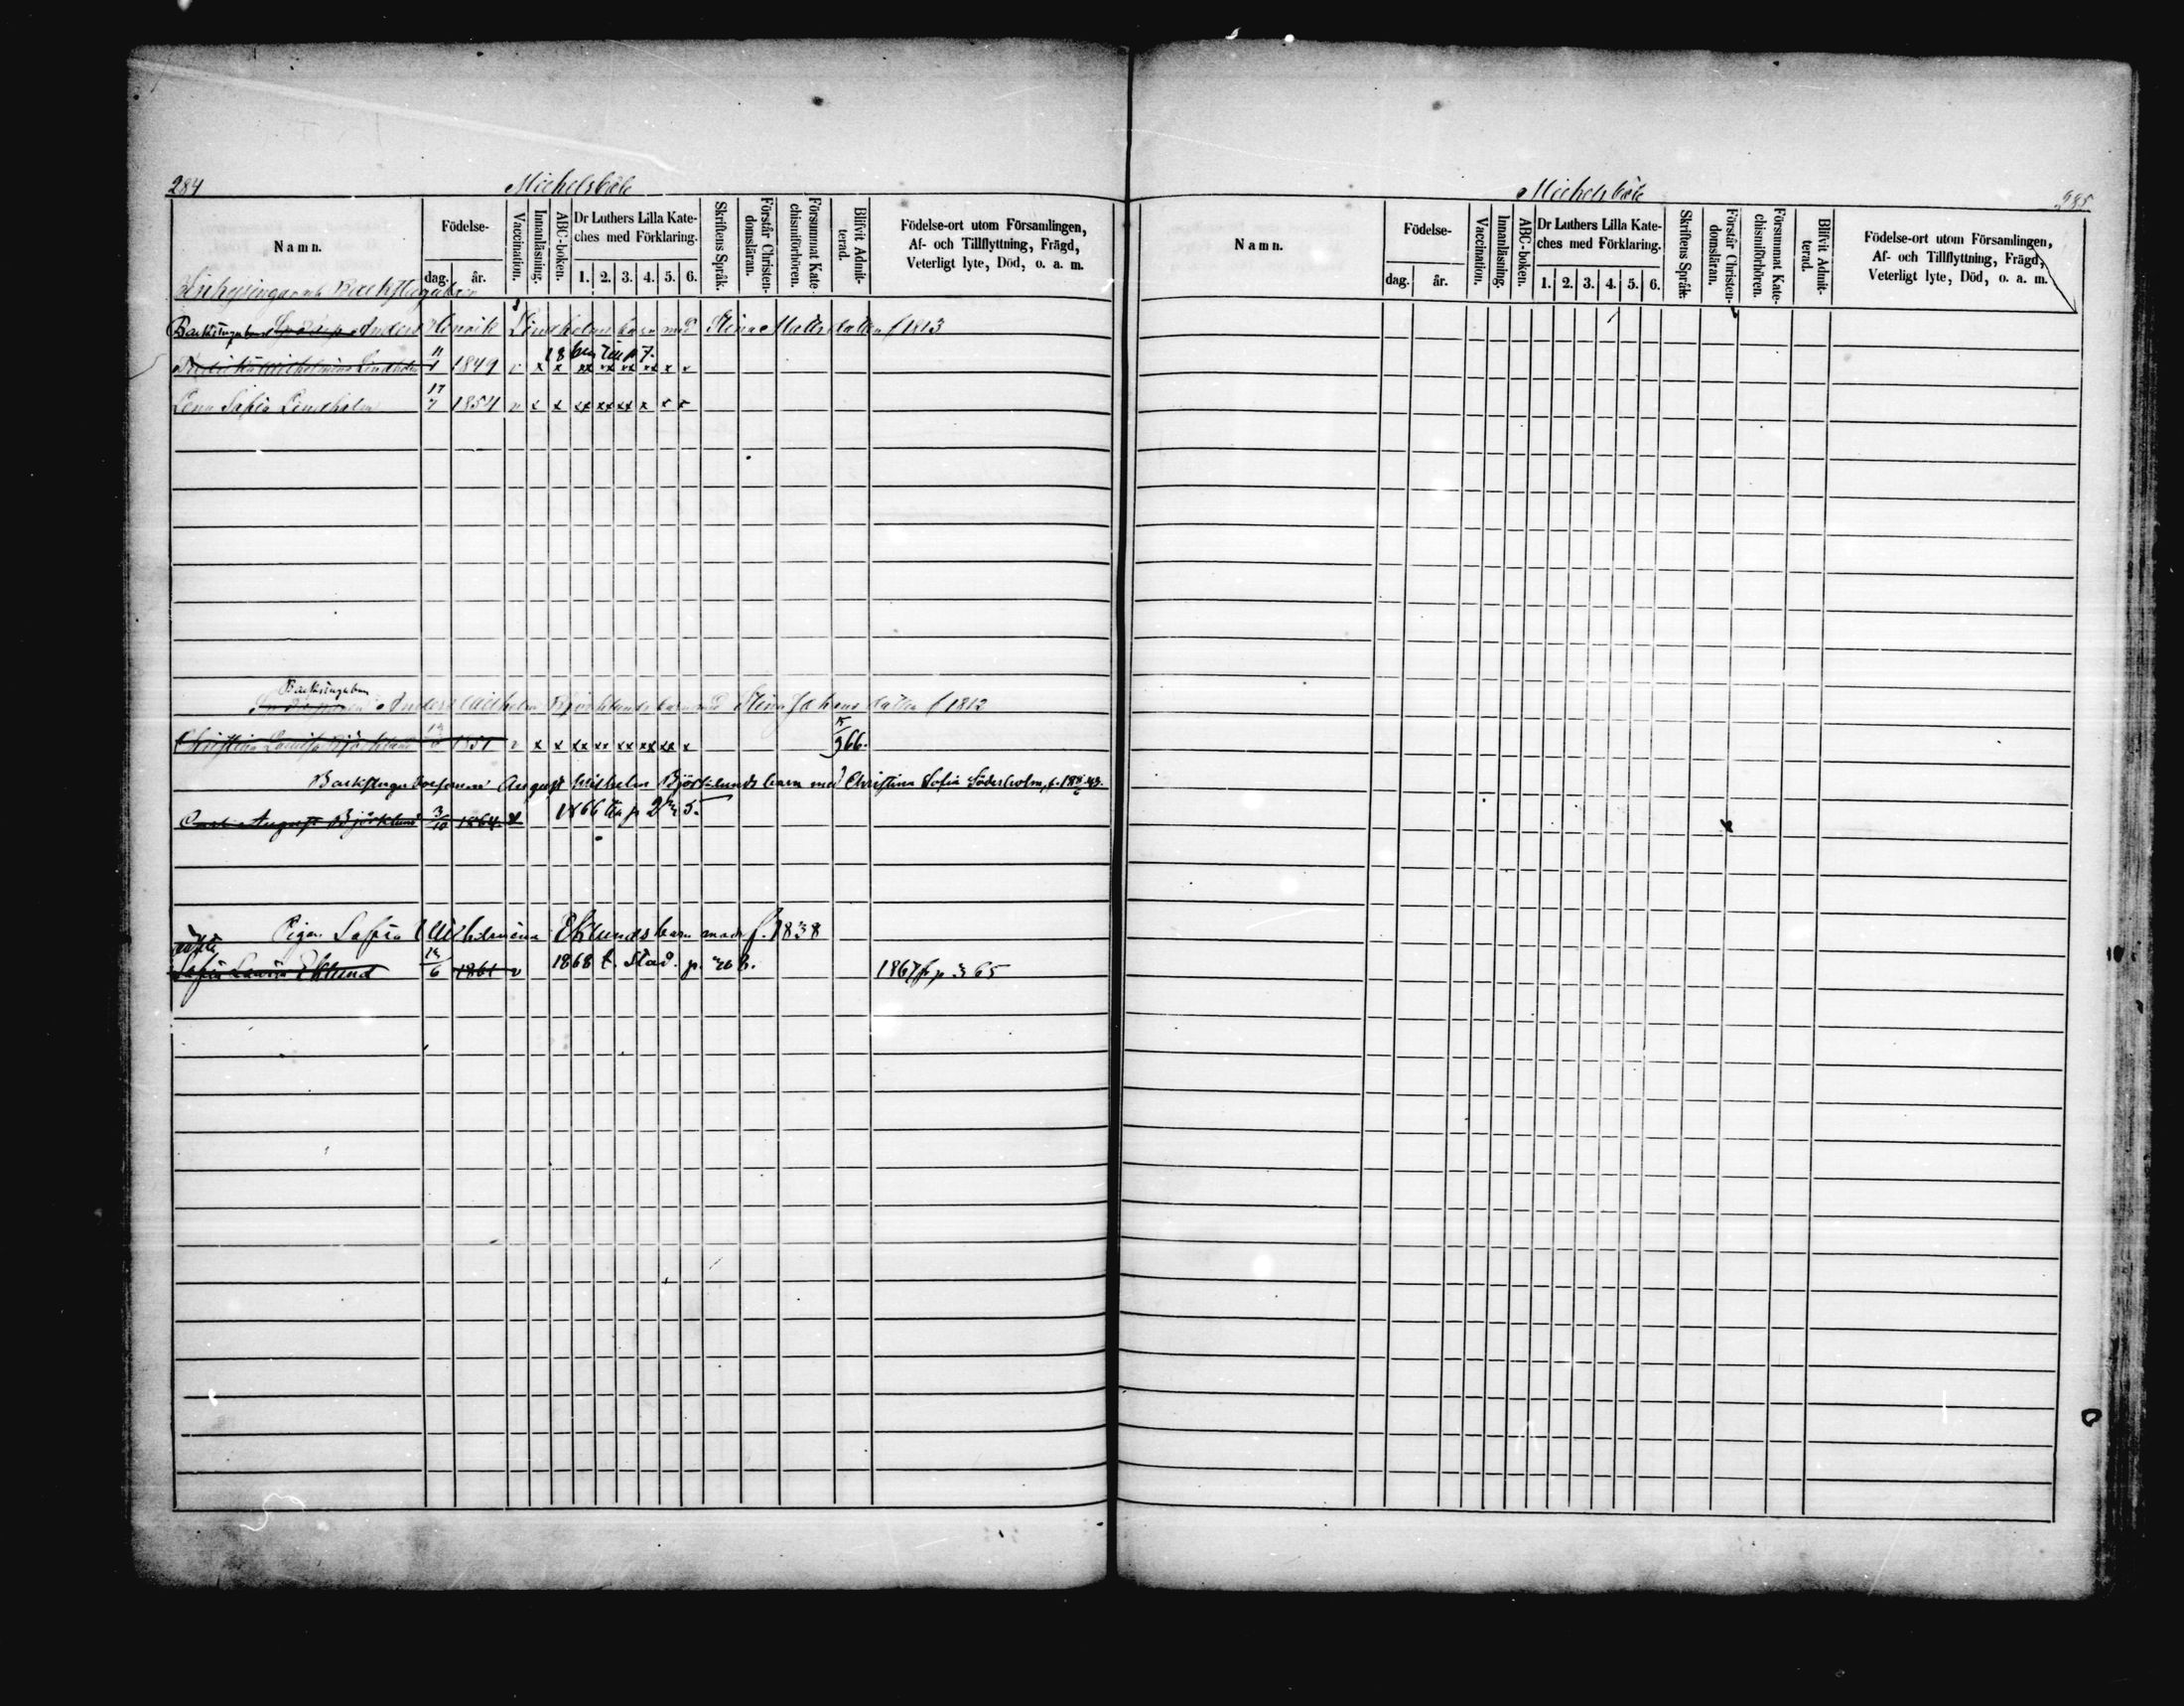 284 Michelsböle
Namn. Födelse- dag. år. Vaccination. Innanläsning. ABC-boken. Dr Luthers Lilla Kateches med Förklaring. 1. 2. 3. 4. 5. 6. Skriftens Språk. Förstår Christendomsläran. Försummat Katechismiförhören. Blifvit Admitterad. Födelse-ort utom Församlingen, Af- och Tillflyttning, Frägd, Veterligt lyte, Död, o. a. m.
Inhysingar och Backstugubor
Backstugubon Anders Henrik Lindholms barn med Stina Matts dotter f 1813
Wilhelmina Lindholm 11/1 1849 v x x xx xx xx xx x x
Lena Sofia Lindholm 17/7 1854 v x x xx xx xx x x x
Backstugubon
Anders Wilhelm Björklunds barn med Stina Johans dotter f 1812
Christina Lovisa Björklund 1851 v x x xx xx xx xx xx x 66.
Backstugu August Wilhelm Björklunds barn med Christina Sofia Söderholm, f.
Carl August Björklund 3/10 1864. v 1866 till p 2 5.
Pigan Sofia Wilhelmina Eklunds barn f. 1838
oäkta
Sofia Lovisa Eklund 6 1861 v 1868 t. Stad. p. 1867 fr p. 365
Michelsböle 285
Namn. Födelse- dag. år. Vaccination. Innanläsning. ABC-boken. Dr Luthers Lilla Kateches med Förklaring. 1. 2. 3. 4. 5. 6. Skriftens Språk. Förstår Christendomsläran. Försummat Katechismiförhören. Blifvit Admitterad. Födelse-ort utom Församlingen, Af- och Tillflyttning, Frägd, Veterligt lyte, Död, o. a. m.